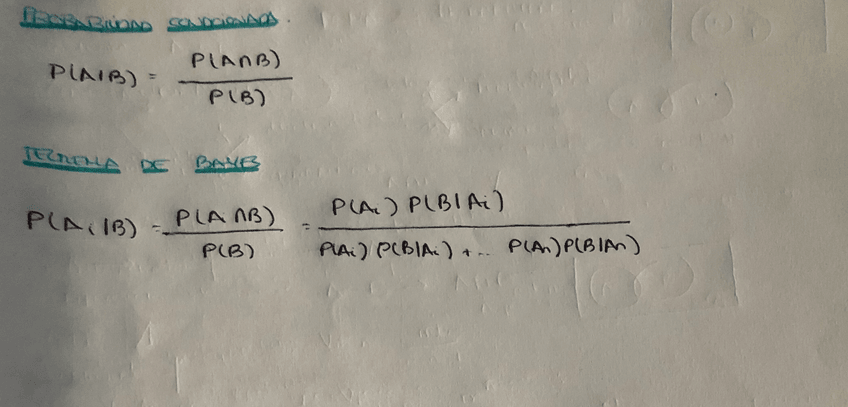 PROBABILIDAD CONDICIONADA.
P(A|B) = P(A∩B) / P(B)
TEOREMA DE BAYES
P(Ai|B) = P(A∩B) / P(B) = P(Ai) P(B|Ai) / P(Ai) P(B|Ai) + ... P(An)P(B|An)